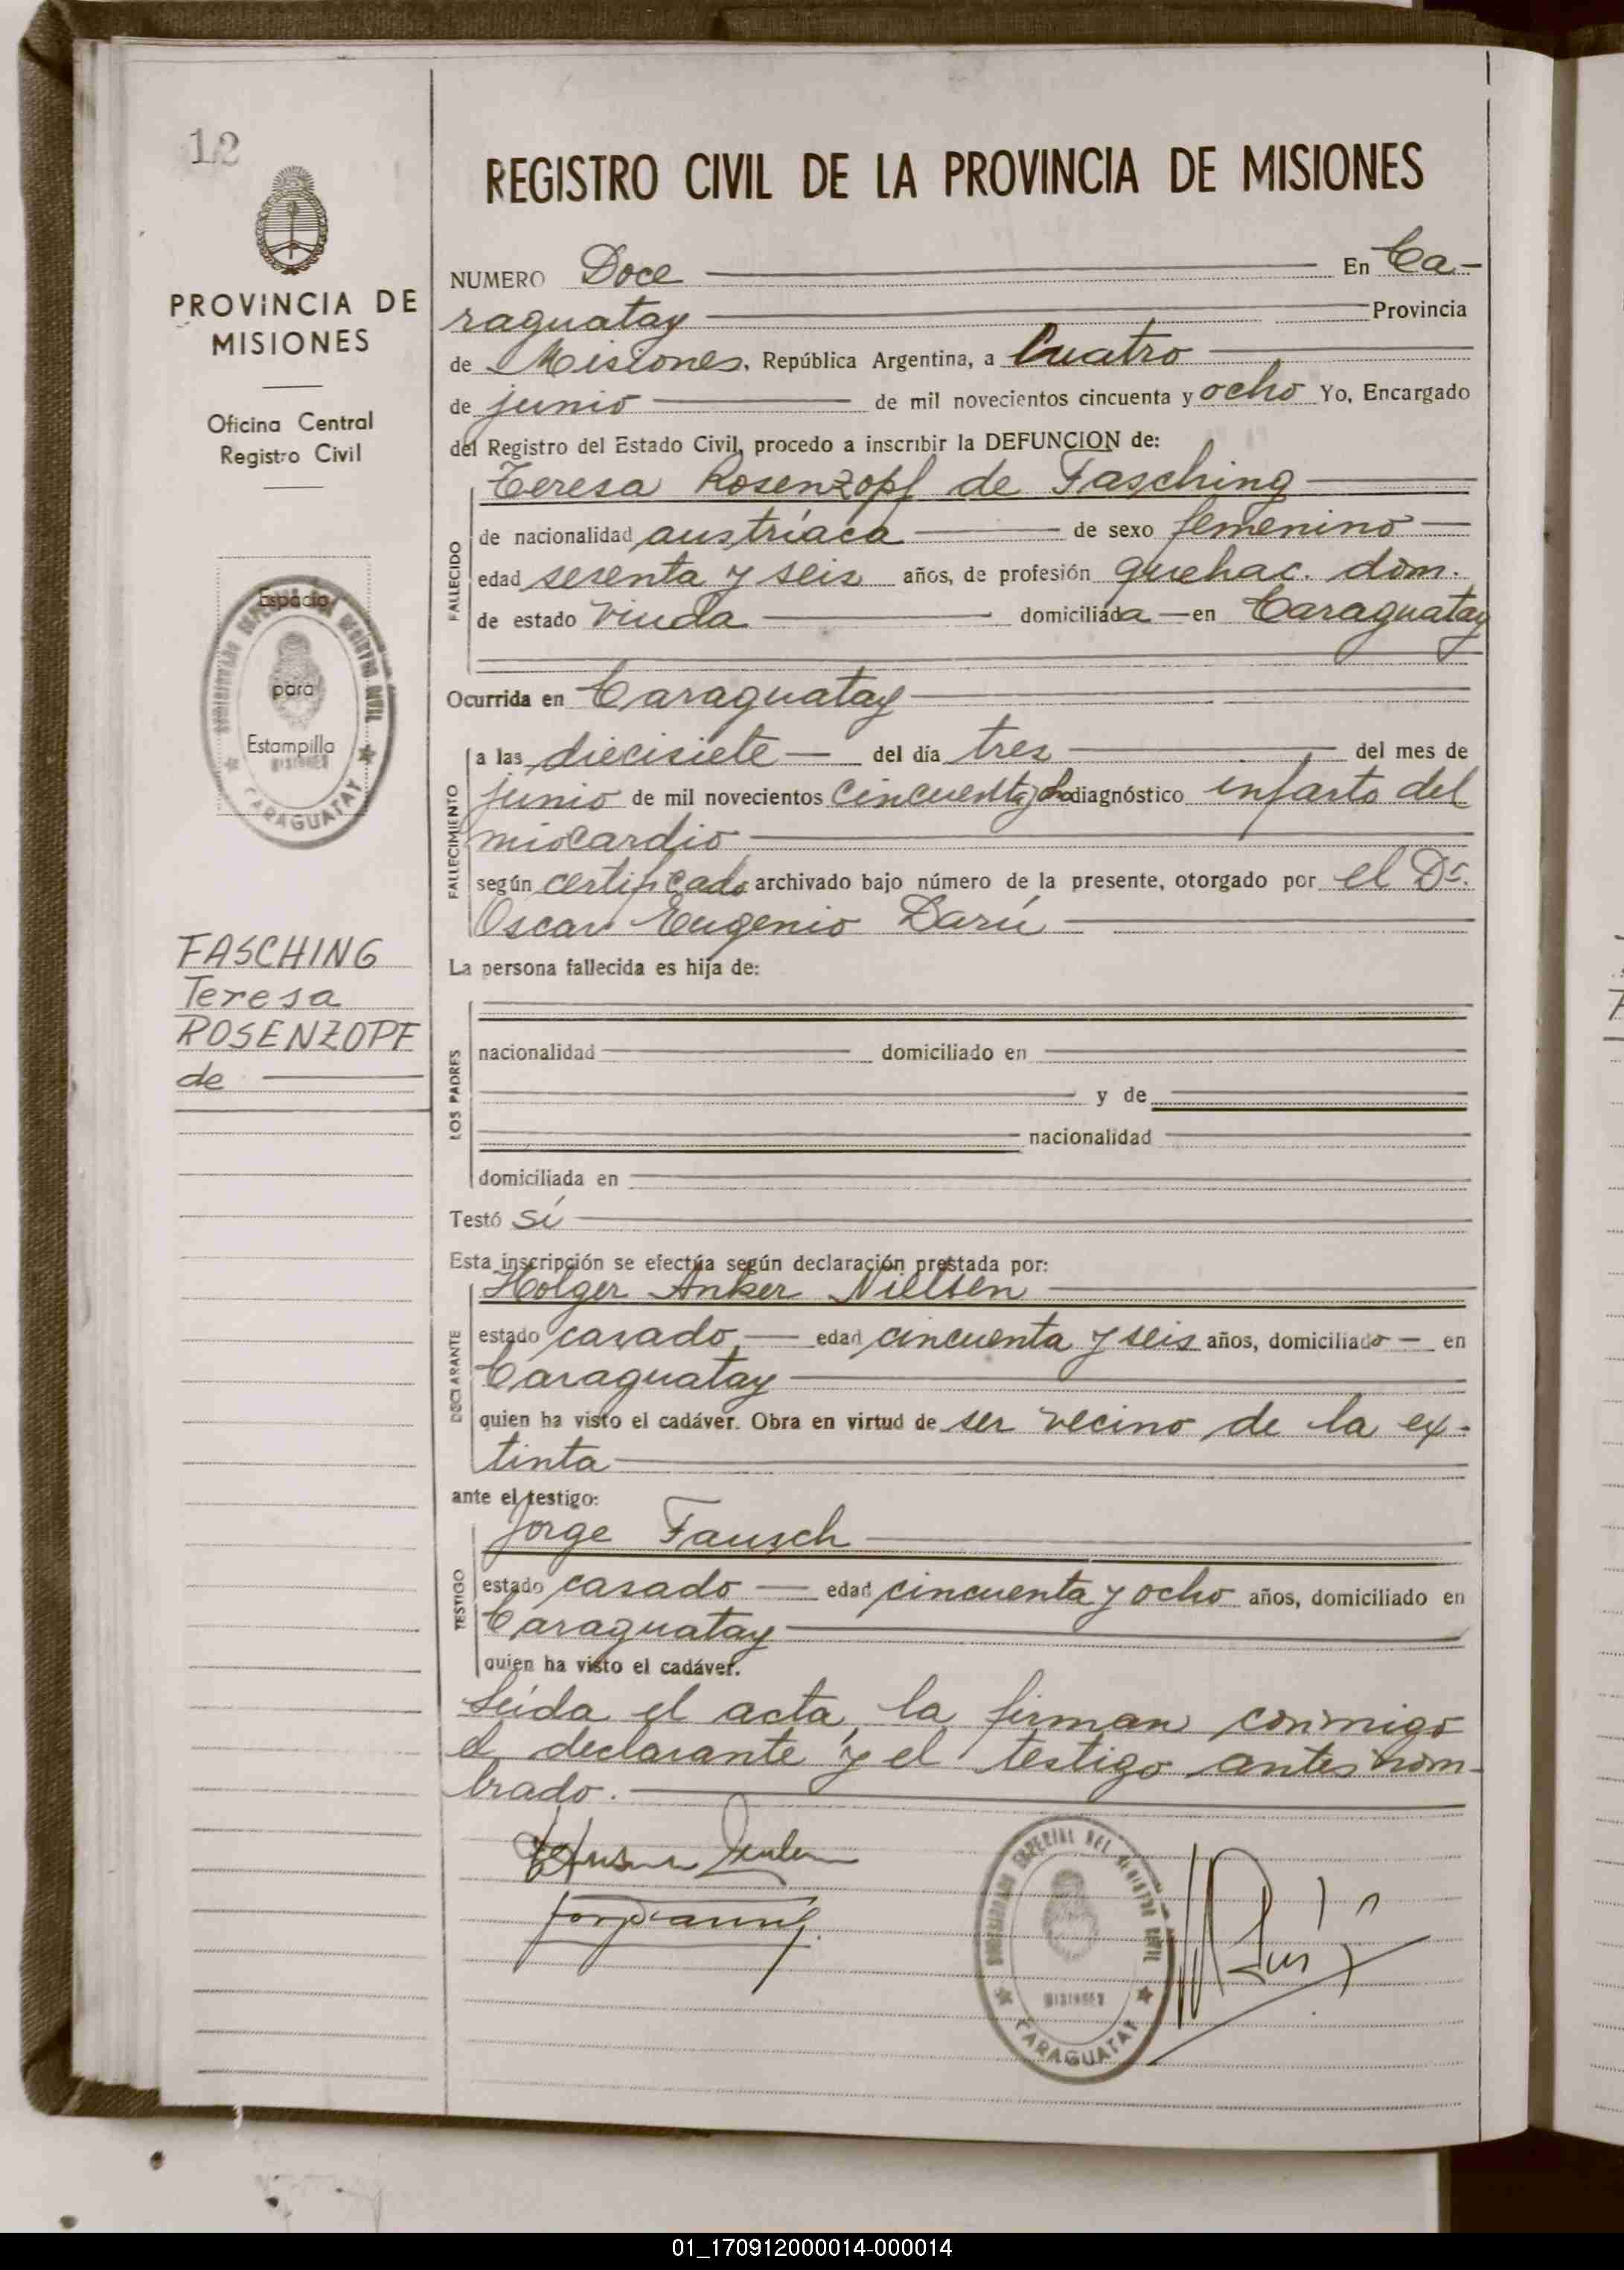 12
PROVINCIA DE
MISIONES
Oficina Central
Registro Civil
Espacio
para
Estampilla
MISIONES
CARAGUATAY
FASCHING
Teresa
ROSENZOPF
de
REGISTRO CIVIL DE LA PROVINCIA DE MISIONES
NUMERO Doce En Ca-
raguatay Provincia
de Misiones, República Argentina, a Cuatro
de junio de mil novecientos cincuenta y ocho Yo, Encargado
del Registro del Estado Civil, procedo a inscribir la DEFUNCION de:
Teresa Rosenzopf de Fasching
FALLECIDO
de nacionalidad austríaca de sexo femenino
edad sesenta y seis años, de profesión quehac. dom.
de estado viuda domiciliada en Caraguatay
Ocurrida en Caraguatay
FALLECIMIENTO
a las diecisiete del día tres del mes de
junio de mil novecientos cincuenta y ocho diagnóstico infarto del
miocardio
según certificado archivado bajo número de la presente, otorgado por el Dr.
Oscar Eugenio Darú
La persona fallecida es hija de:
LOS PADRES
nacionalidad domiciliado en
y de
nacionalidad
domiciliada en
Testó Sí
Esta inscripción se efectúa según declaración prestada por:
Holger Anker Nielsen
DECLARANTE
estado casado edad cincuenta y seis años, domiciliado en
Caraguatay
quien ha visto el cadáver. Obra en virtud de ser vecino de la ex-
tinta
ante el testigo:
Jorge Fausch
TESTIGO
estado casado edad cincuenta y ocho años, domiciliado en
Caraguatay
quien ha visto el cadáver.
Leída el acta, la firman conmigo
el declarante y el testigo antes nom-
brado.
ESPECIAL DEL REGISTRO CIVIL
MISIONES
CARAGUATAY
01_170912000014-000014